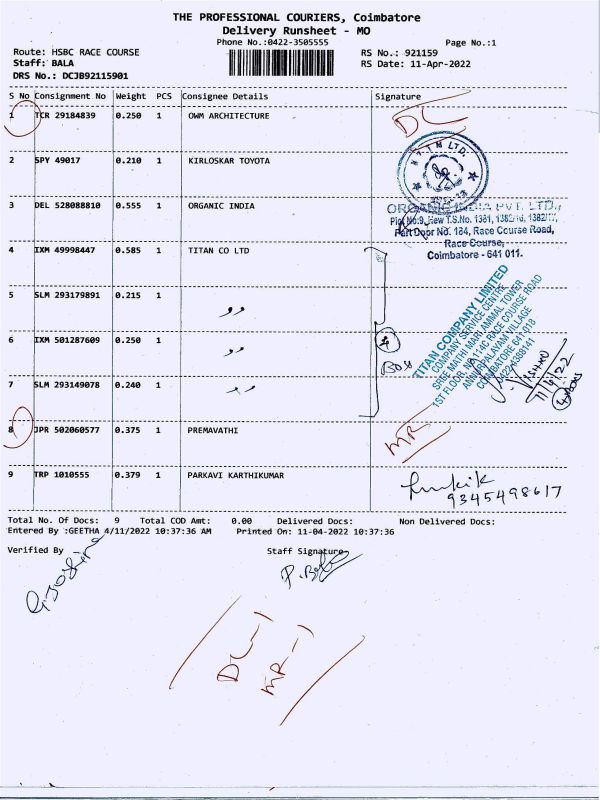 THE PROFESSIONAL COURIERS, Coimbatore
Delivery Runsheet - MO
Phone No.:0422-3505555
Page No.:1
Route: HSBC RACE COURSE
RS No.: 921159
Staff: BALA
RS Date: 11-Apr-2022
DRS No.: DCJB92115901
S No Consignment No Weight PCS Consignee Details Signature
1 TCR 29184839 0.250 1 OWM ARCHITECTURE DL
2 SPY 49017 0.210 1 KIRLOSKAR TOYOTA
3 DEL 528088810 0.555 1 ORGANIC INDIA
ORGANIC INDIA PVT. LTD.,
Plot No:9, New T.S.No. 1381, 1382/16, 1382/17,
Part Door No. 184, Race Course Road,
Race Course,
Coimbatore - 641 011.
4 IXM 49998447 0.585 1 TITAN CO LTD
5 SLM 293179891 0.215 1
6 IXM 501287609 0.250 1
7 SLM 293149078 0.240 1
4
Box
TITAN COMPANY LIMITED
COMPANY SERVICE CENTRE
SREE MATHI MARI AMMAL TOWER
1ST FLOOR, NO 114C RACE COURSE ROAD
ANNUPPALAYAM VILLAGE
COIMBATORE 641-018
0422-4388141
11/4/22
8 JPR 502060577 0.375 1 PREMAVATHI MR
9 TRP 1010555 0.379 1 PARKAVI KARTHIKUMAR
9345498617
Total No. Of Docs: 9 Total COD Amt: 0.00 Delivered Docs: Non Delivered Docs:
Entered By :GEETHA 4/11/2022 10:37:36 AM Printed On: 11-04-2022 10:37:36
Verified By Staff Signature
DL-1
MR-1